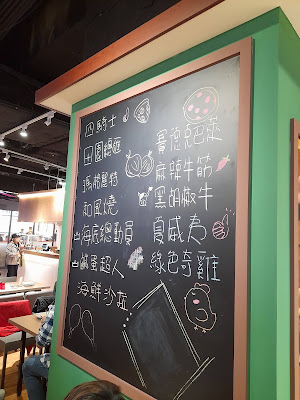 四騎士
田園總匯
瑪格麗特
和風燒
海底總動員
鹹蛋超人
海鮮沙拉
賽德克巴萊
麻辣牛筋
黑胡椒牛
夏威夷
綠色奇雞